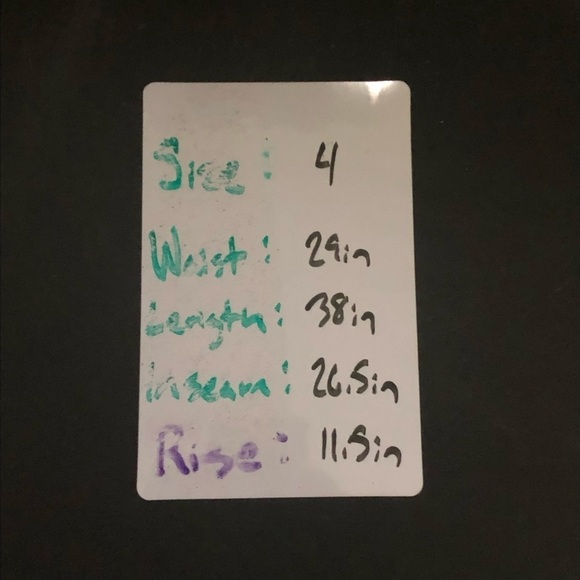 Size: 4
Waist: 29in
Length: 38in
Inseam: 26.5in
Rise: 11.5in